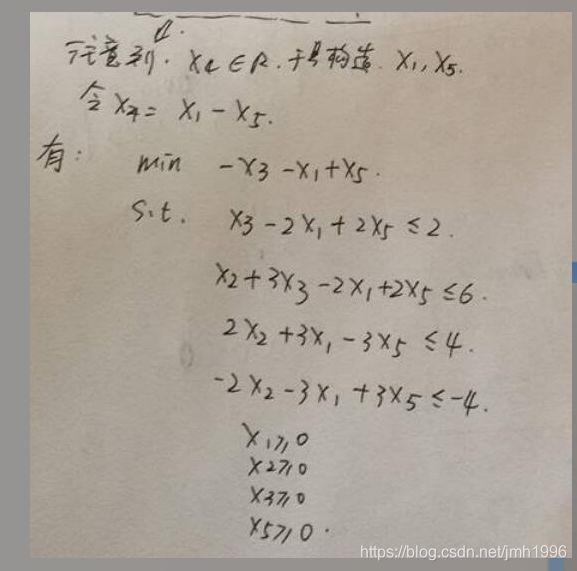 注意到. X4 ∈ R. 于是构造. X1, X5.
令 X4 = X1 - X5.
有: min -X3 - X1 + X5.
s.t. X3 - 2X1 + 2X5 ≤ 2.
X2 + 3X3 - 2X1 + 2X5 ≤ 6.
2X2 + 3X1 - 3X5 ≤ 4.
-2X2 - 3X1 + 3X5 ≤ -4.
X1 ≥ 0
X2 ≥ 0
X3 ≥ 0
X5 ≥ 0.
https://blog.csdn.net/jmh1996